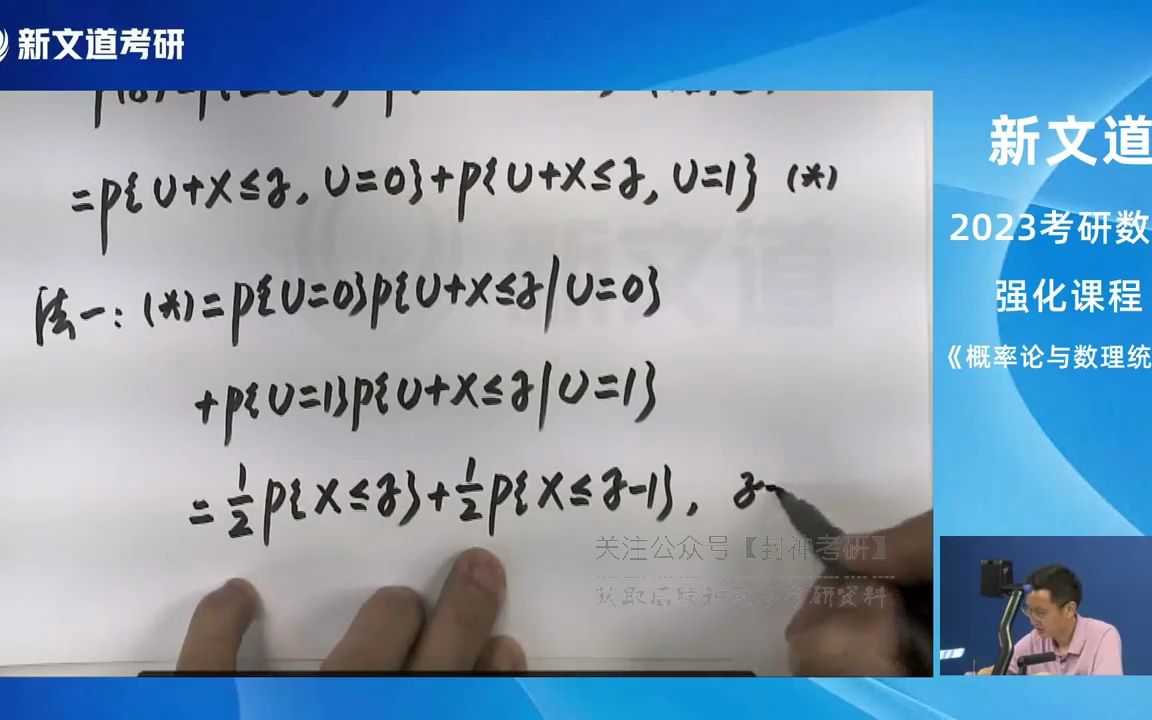 新文道考研
=P{U+X≤z, U=0}+P{U+X≤z, U=1} (*)
法一: (*)=P{U=0}P{U+X≤z|U=0}
+P{U=1}P{U+X≤z|U=1}
=1/2P{X≤z}+1/2P{X≤z-1}, z-
关注公众号【封神考研】
获取后续和更多考研资料
新文道
2023考研数
强化课程
《概率论与数理统
新文道